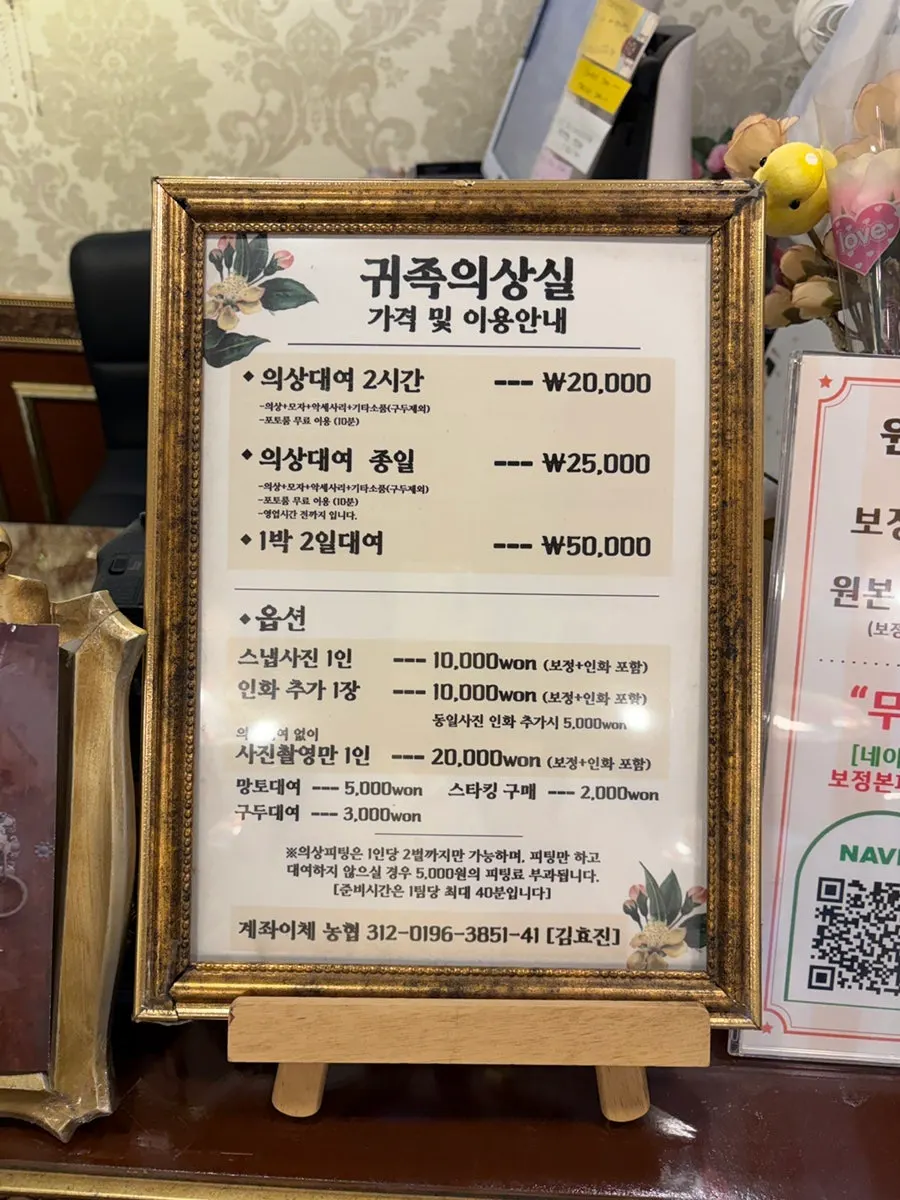 귀족의상실
가격 및 이용안내
◆ 의상대여 2시간 --- ₩20,000
-의상+모자+악세사리+기타소품(구두제외)
-포토룸 무료 이용 (10분)
◆ 의상대여 종일 --- ₩25,000
-의상+모자+악세사리+기타소품(구두제외)
-포토룸 무료 이용 (10분)
-영업시간 전까지 입니다.
◆ 1박 2일대여 --- ₩50,000
◆옵션
스냅사진 1인 --- 10,000won (보정+인화 포함)
인화 추가 1장 --- 10,000won (보정+인화 포함)
동일사진 인화 추가시 5,000won
없이
사진촬영만 1인 --- 20,000won (보정+인화 포함)
망토대여 --- 5,000won 스타킹 구매 --- 2,000won
구두대여 --- 3,000won
※의상피팅은 1인당 2벌까지만 가능하며, 피팅만 하고
대여하지 않으실 경우 5,000원의 피팅료 부과됩니다.
[준비시간은 1팀당 최대 40분입니다]
계좌이체 농협 312-0196-3851-41 [김효진]
love
원본
NAV